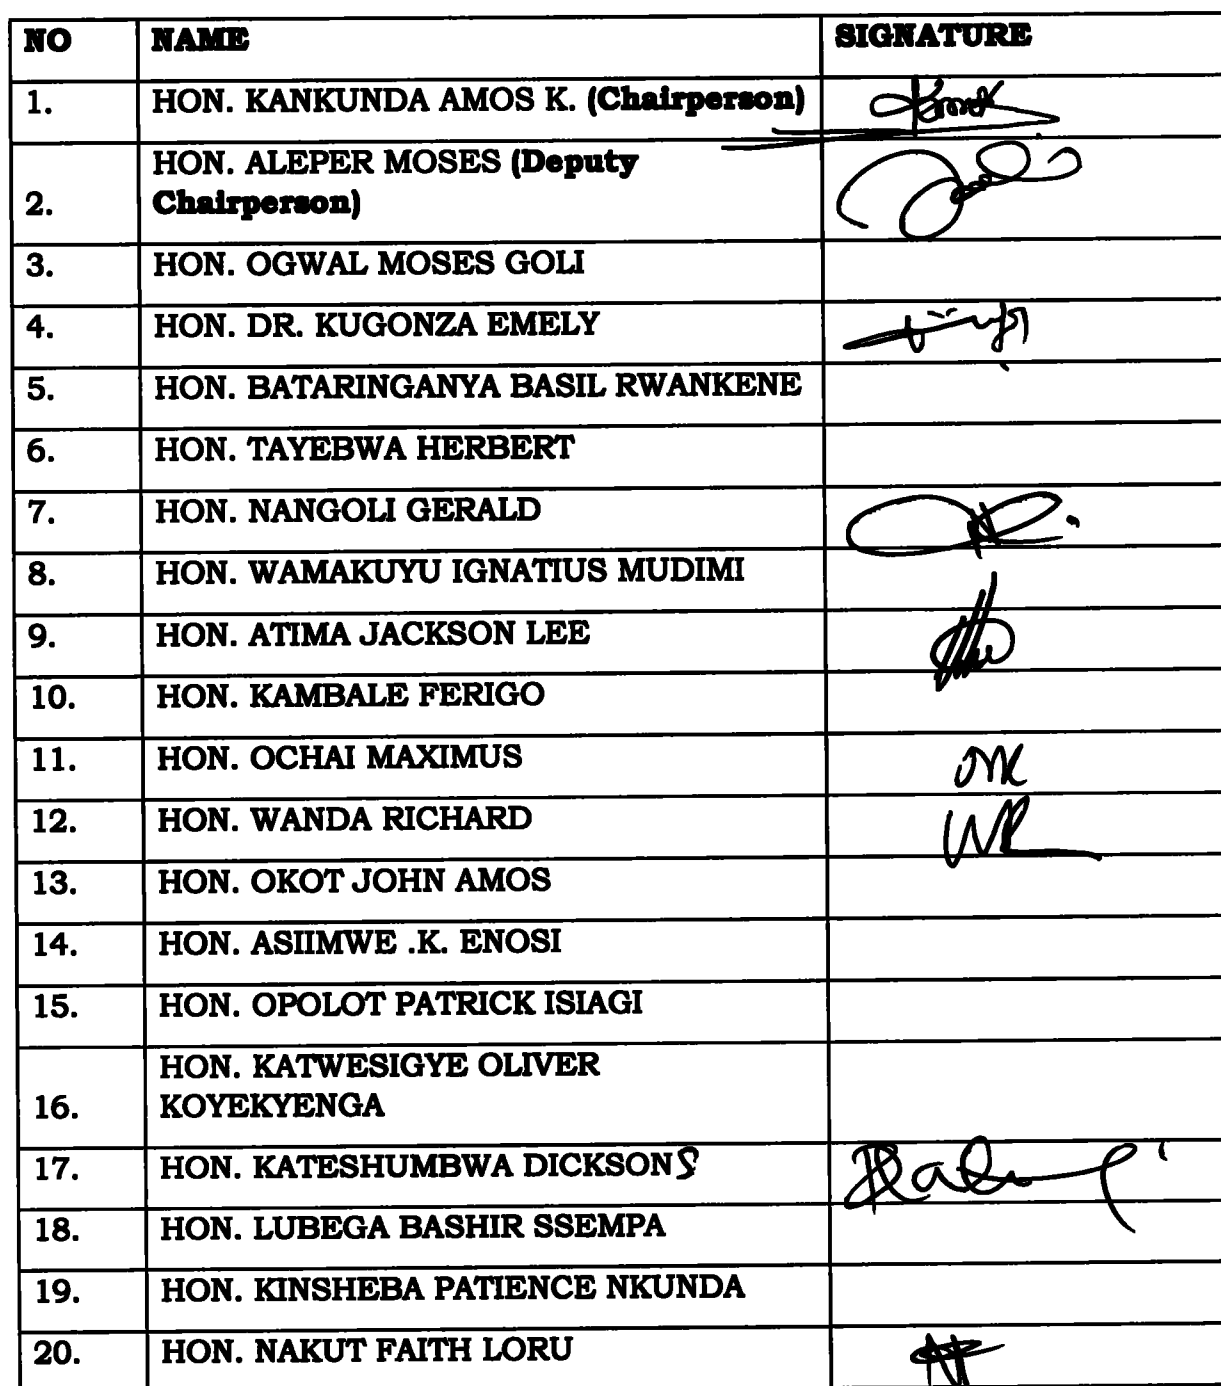 NO NAME SIGNATURE
1. HON. KANKUNDA AMOS K. (Chairperson)
HON. ALEPER MOSES (Deputy
2. Chairperson)
3. HON. OGWAL MOSES GOLI
4. HON. DR. KUGONZA EMELY
5. HON. BATARINGANYA BASIL RWANKENE
6. HON. TAYEBWA HERBERT
7. HON. NANGOLI GERALD
8. HON. WAMAKUYU IGNATIUS MUDIMI
9. HON. ATIMA JACKSON LEE
10. HON. KAMBALE FERIGO
11. HON. OCHAI MAXIMUS
12. HON. WANDA RICHARD
13. HON. OKOT JOHN AMOS
14. HON. ASIIMWE .K. ENOSI
15. HON. OPOLOT PATRICK ISIAGI
HON. KATWESIGYE OLIVER
16. KOYEKYENGA
17. HON. KATESHUMBWA DICKSONS
18. HON. LUBEGA BASHIR SSEMPA
19. HON. KINSHEBA PATIENCE NKUNDA
20. HON. NAKUT FAITH LORU